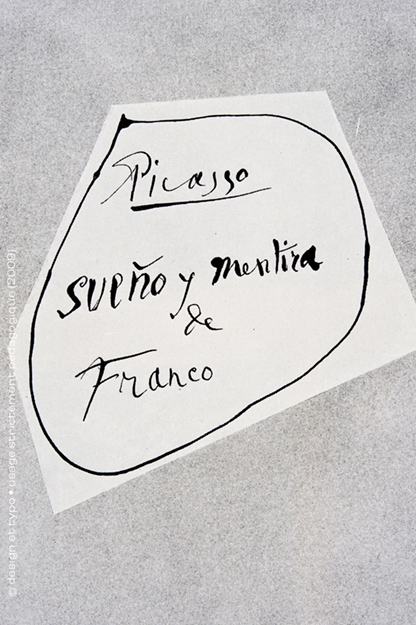 Picasso
sueño y mentira
de
Franco
© design et typo • usage strictement pédagogique (2009)